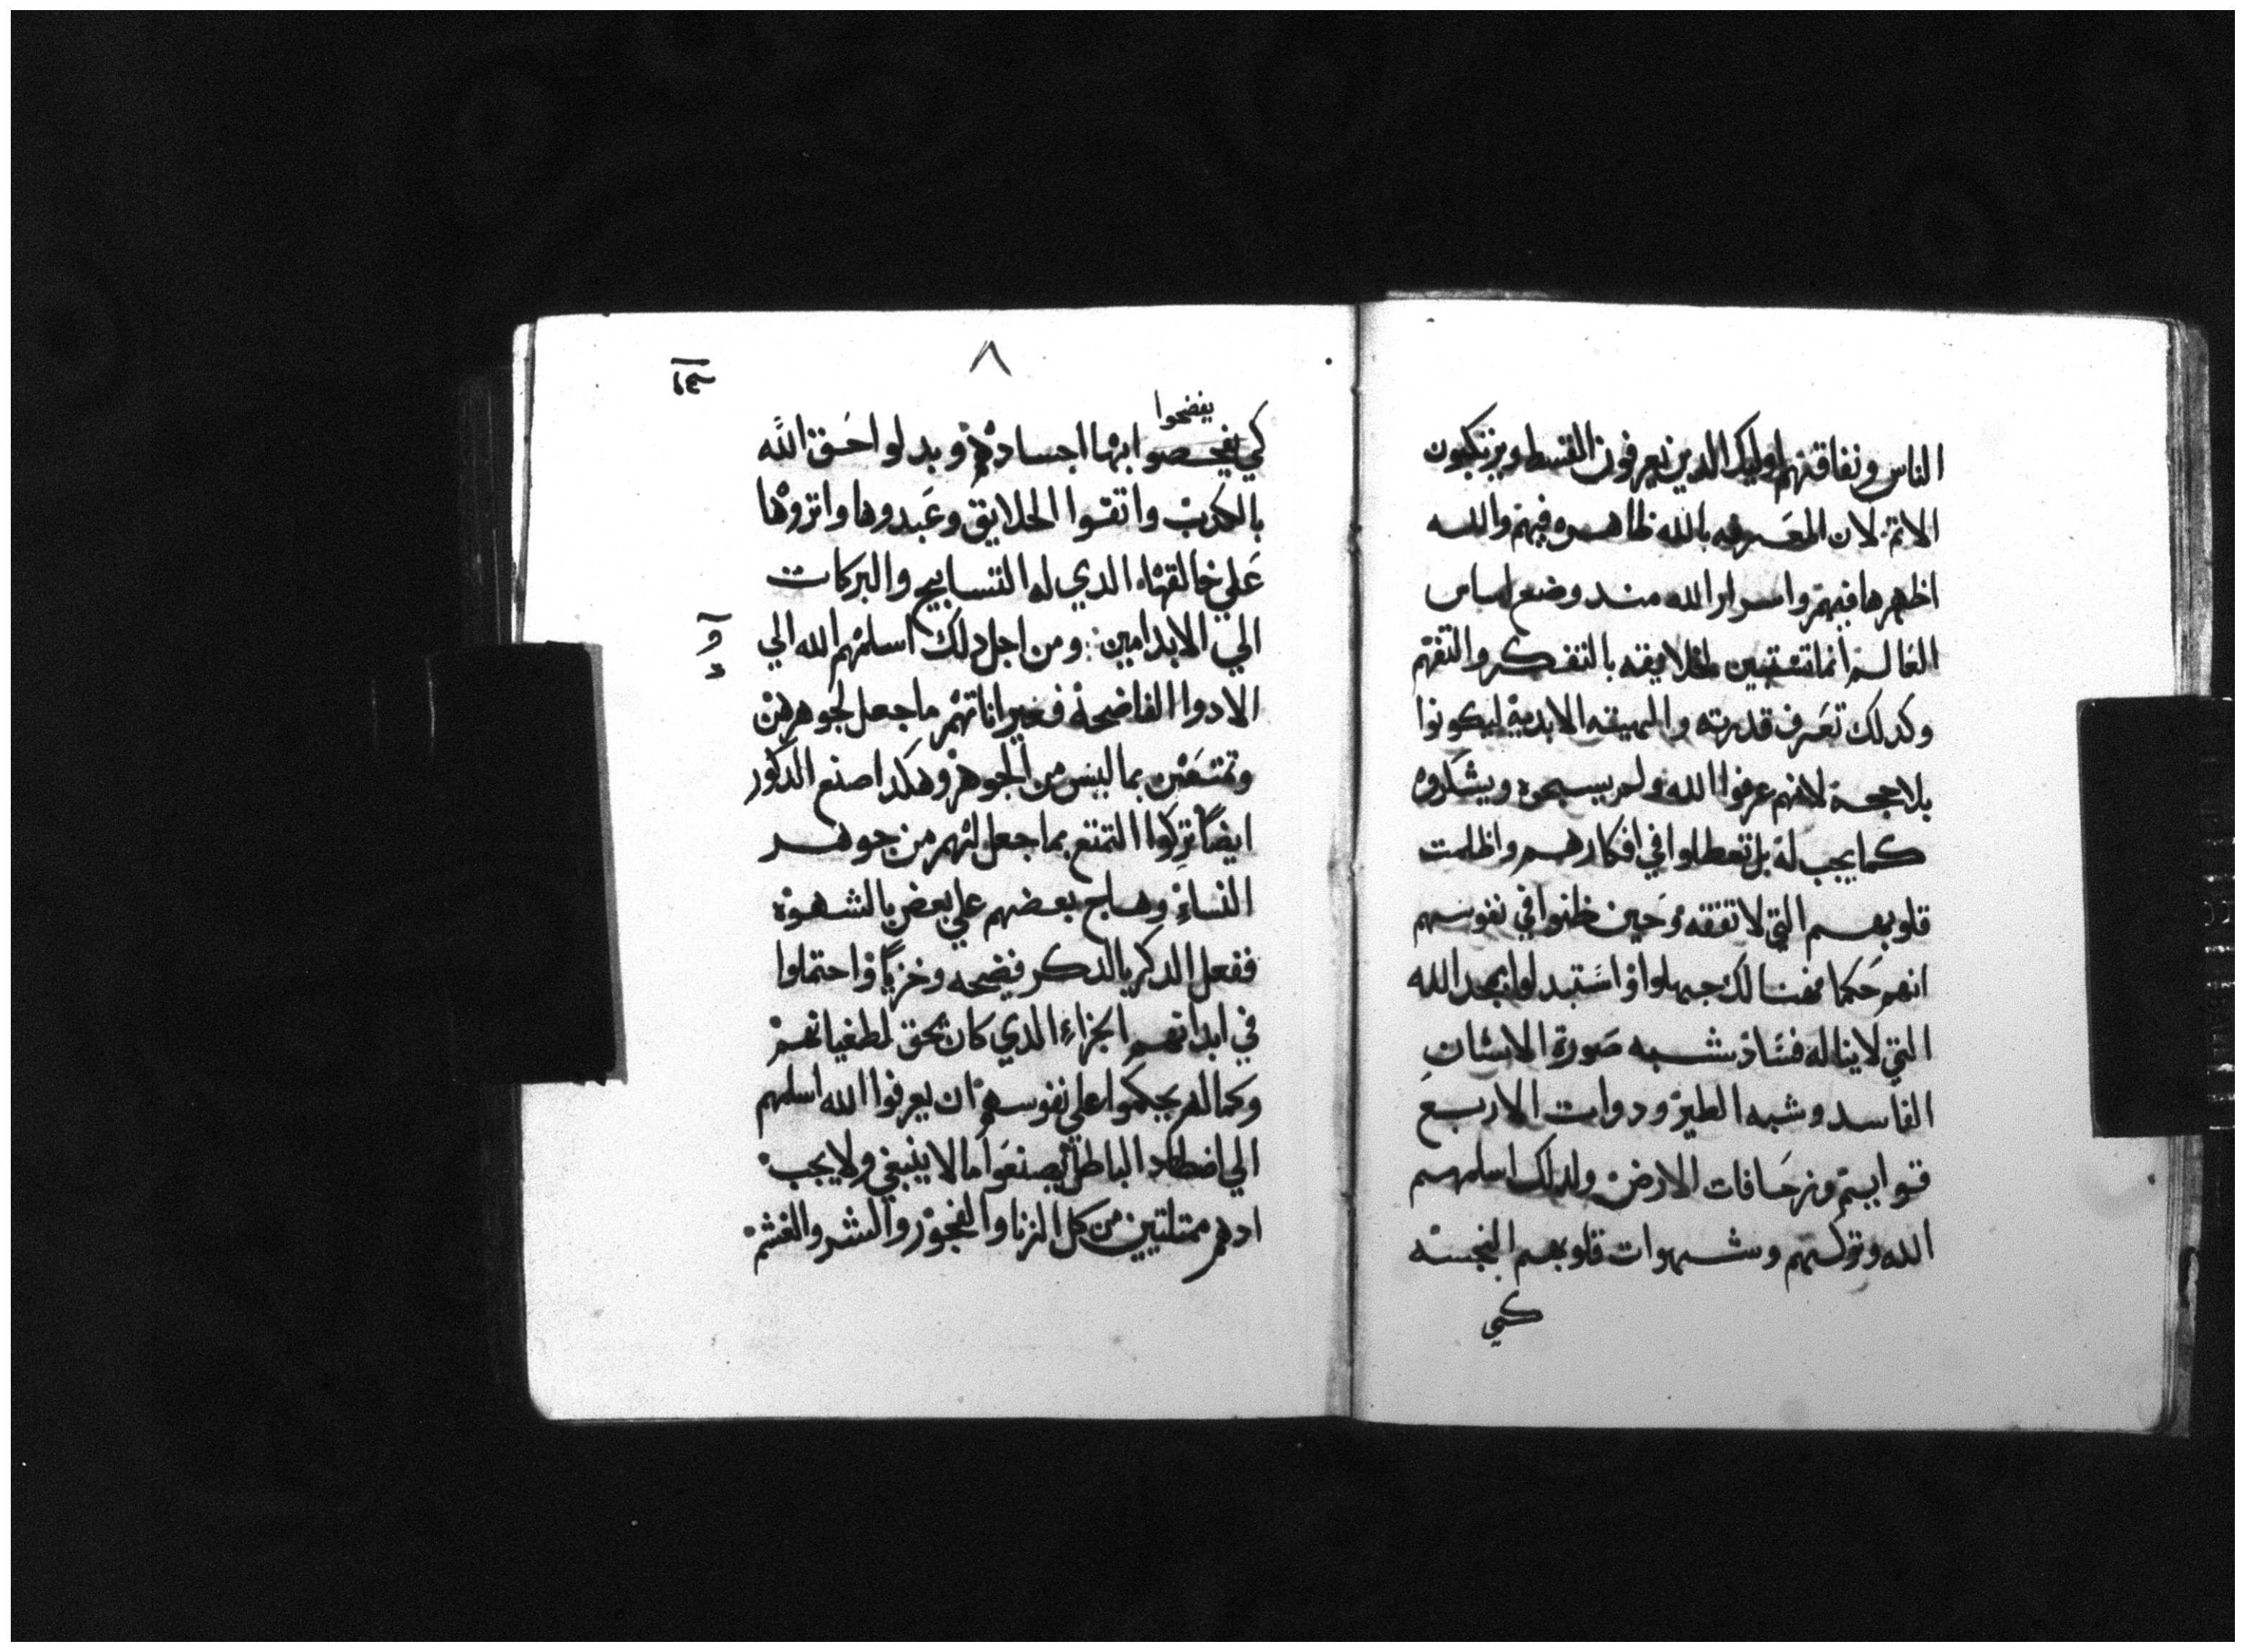 الناس ونفاقهم اوليك الدين يعرفون القسط ويرتكبون
الاتم لان المعرفه بالله ظاهره فيهم والله
اظهرها فيهم واسرار الله مند وضع اساس
العالم انما تستبين لخلايقه بالتفكر والتفهم
وكدلك تعرف قدرته والهيته الابدية ليكونوا
بلا حجة لانهم عرفوا الله ولم يسبحوه ويشكروه
كما يجب له بل تعطلوا في افكارهم واظلمت
قلوبهم التي لا تفقه وحين ظنوا في نفوسهم
انهم حكما فهنالك جهلوا واستبدلوا بمجد الله
التي لا يناله فساد شبه صورة الانسان
الفاسد وشبه الطير ودوات الاربع
قوايم وزحافات الارض ولدلك اسلمهم
الله وتركهم وشهوات قلوبهم النجسه
كي
٨
يفضحوا
كي يفحصوا ابها اجسادهم وبدلوا حق الله
بالكدب واتقوا الخلايق وعبدوها واتروها
علي خالقها الدي له التسابيح والبركات
الي الابد امين ومن اجل دلك اسلمهم الله الي
الادوا الفاضحة فغير اناتهم ما جعل لجوهرهن
وتمتعن بما ليس من الجوهر وهكدا صنع الدكور
ايضا تركوا التمتع بما جعل لهم من جوهر
النساء وهاج بعضهم علي بعض بالشهوة
ففعل الدكر بالدكر فضيحه وخزيا واحتملوا
في ابدانهم الجزاء الدي كان يحق لطغيانهم
وكما لم يحكموا علي نفوسهم ان يعرفوا الله اسلمهم
الي اضطهاد الباطل ليصنعوا ما لا ينبغي ولا يجب
ادهم ممتلتيين من كل الزنا والفجور والشر والغشم